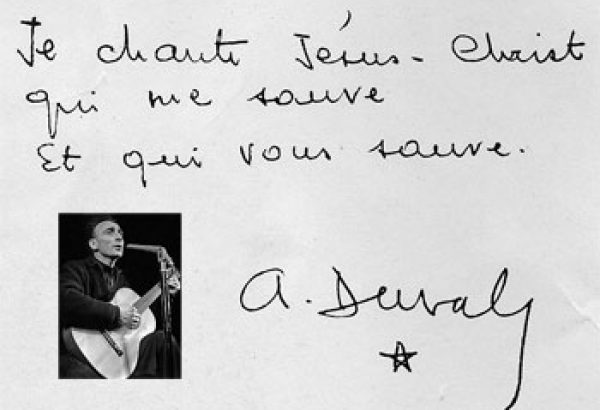 Je chante Jésus-Christ
qui me sauve
Et qui vous sauve.
A. Duval